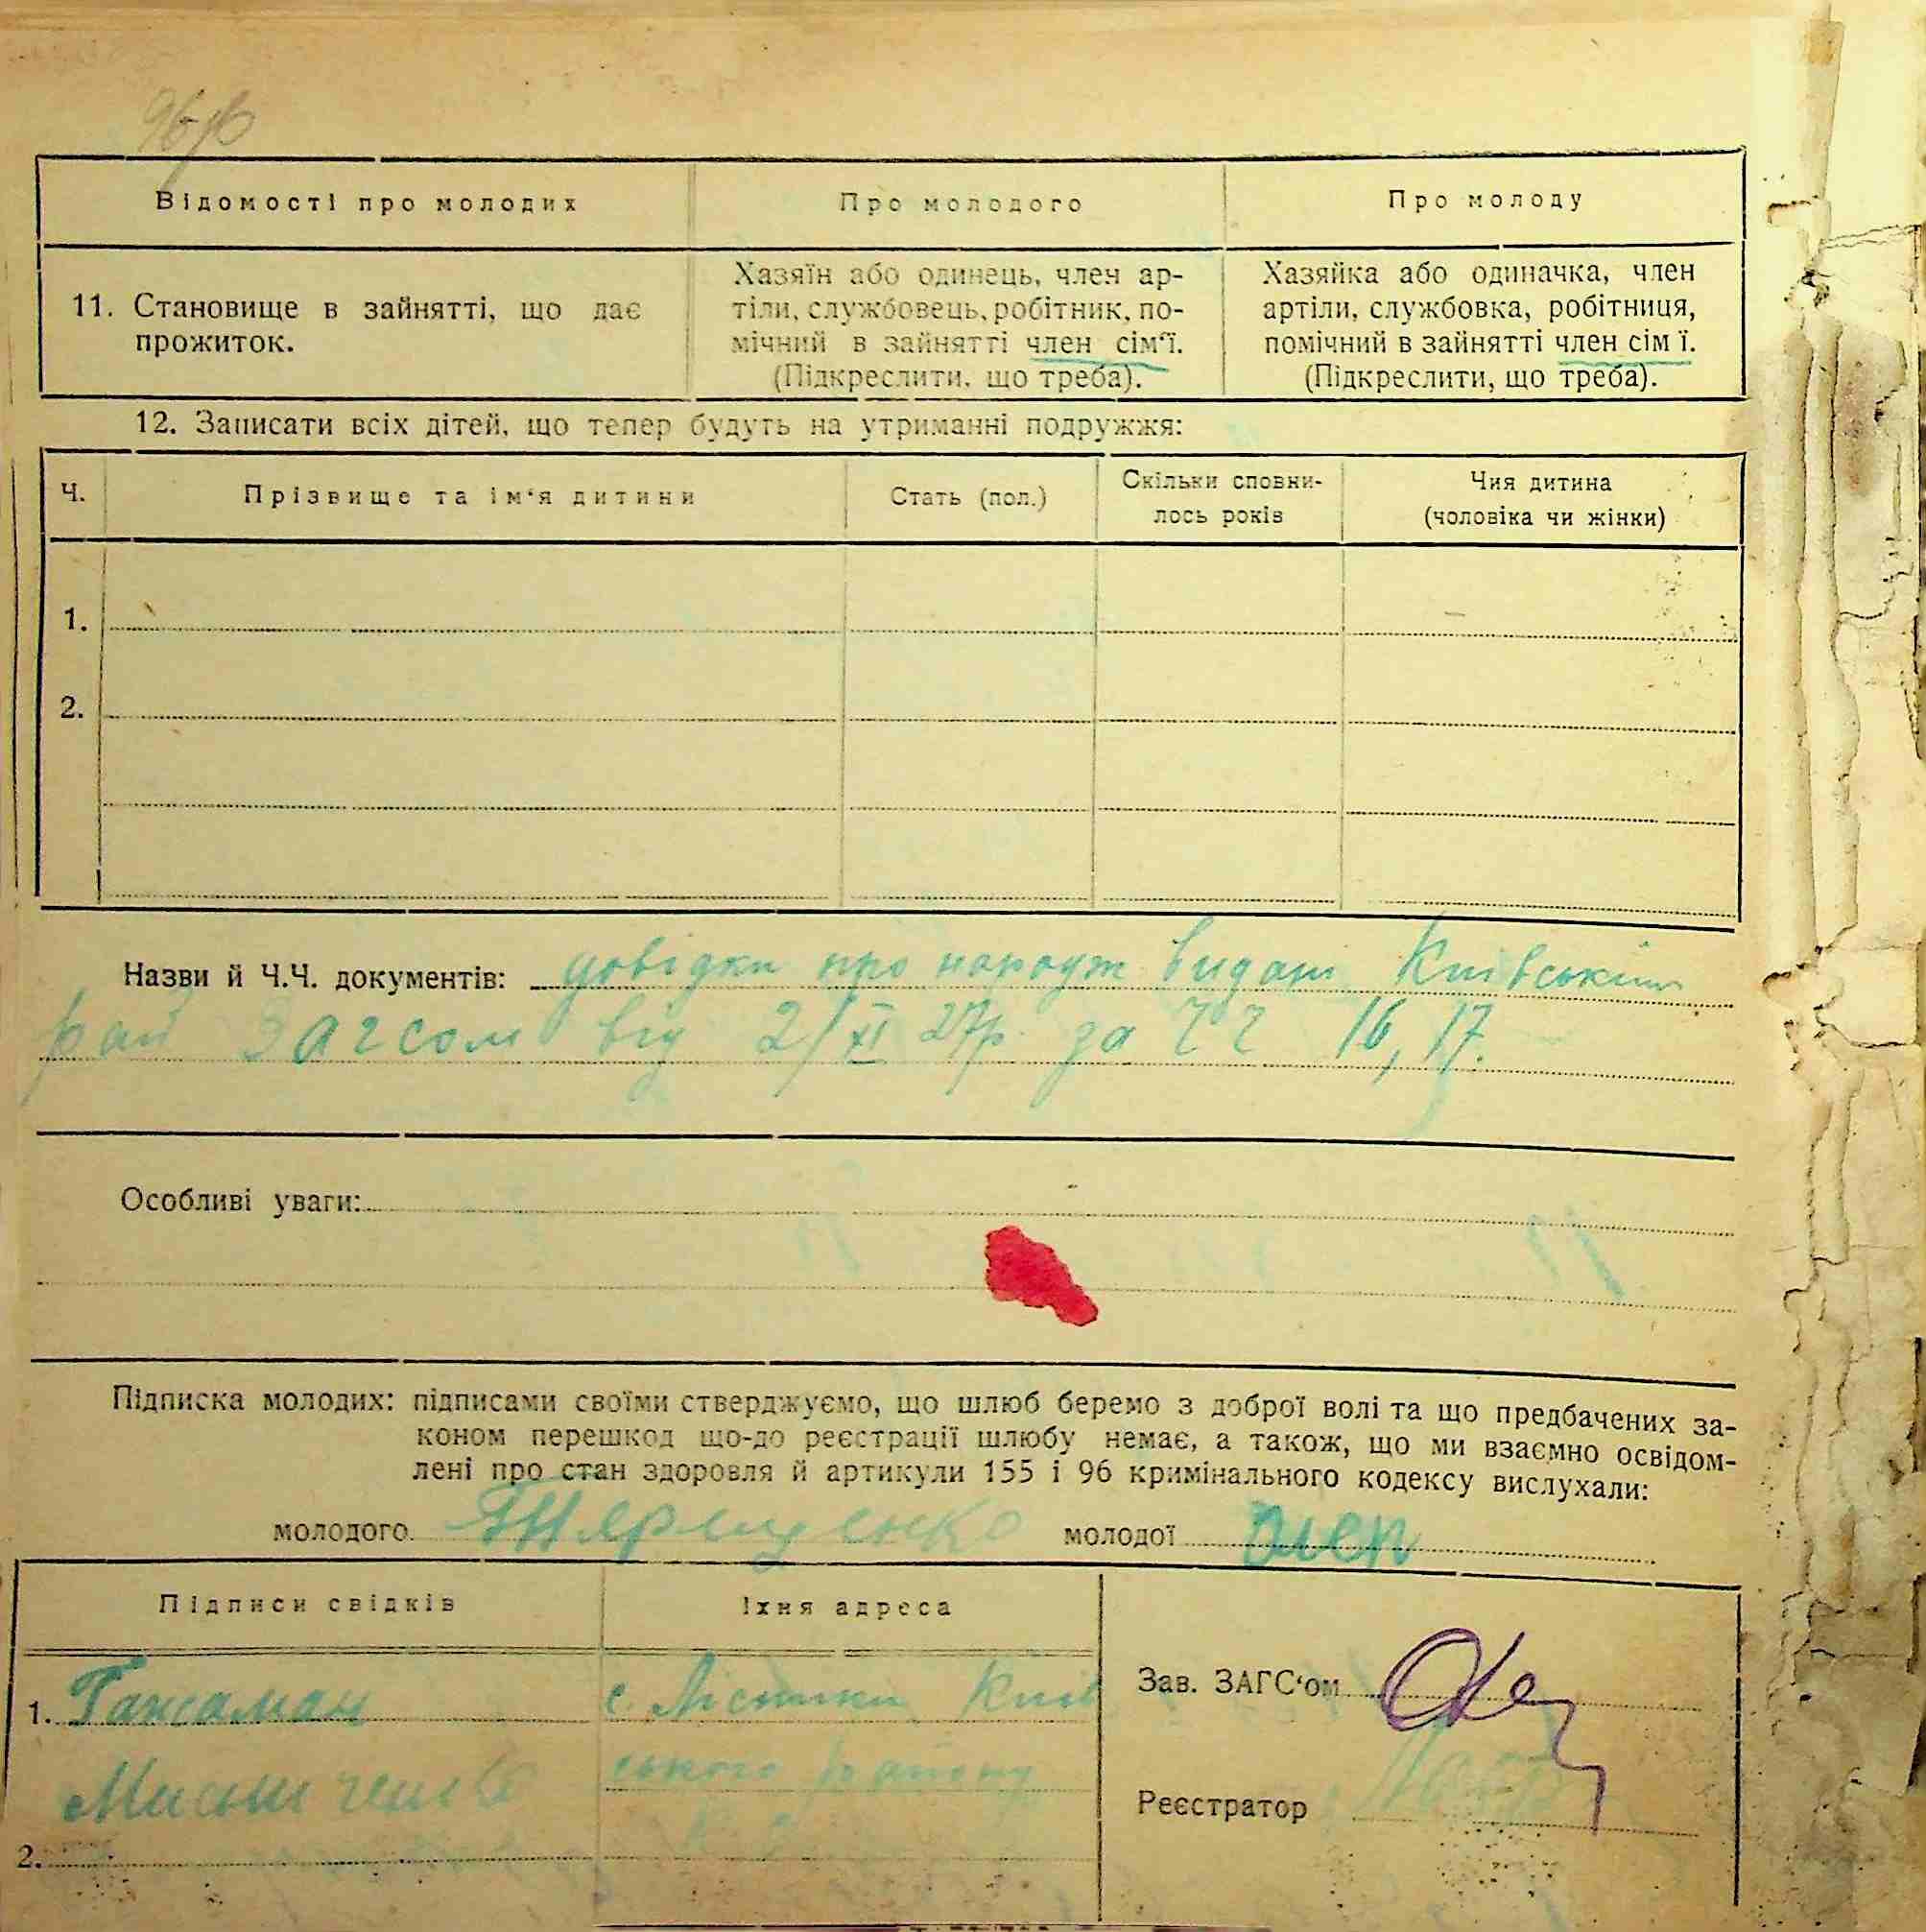 Відомості про молодих Про молодого Про молоду
11. Становище в зайнятті, що дає прожиток.
Хазяїн або одинець, член ар-
тіли, службовець, робітник, по-
мічний в зайнятті член сім'ї.
(Підкреслити, що треба).
Хазяйка або одиначка, член
артіли, службовка, робітниця,
помічний в зайнятті член сім ї.
(Підкреслити, що треба).
12. Записати всіх дітей, що тепер будуть на утриманні подружжя:
Ч. Прізвище та ім'я дитини Стать (пол.) Скільки сповни-лось років Чия дитина (чоловіка чи жінки)
1.
2.
Назви й Ч.Ч. документів: довідки про народж видані Київським
рай загсом від 2/XI 27р. за ЧЧ 16, 17.
Особливі уваги:
Підписка молодих: підписами своїми стверджуємо, що шлюб беремо з доброї волі та що предбачених за-
коном перешкод що-до реєстрації шлюбу немає, а також, що ми взаємно освідом-
лені про стан здоровля й артикули 155 і 96 кримінального кодексу вислухали:
молодого Терещенко молодої
Підписи свідків Їхня адреса
Зав. ЗАГС'ом
1. Гажаман с Лісники Київ
ського району
Реєстратор
2.